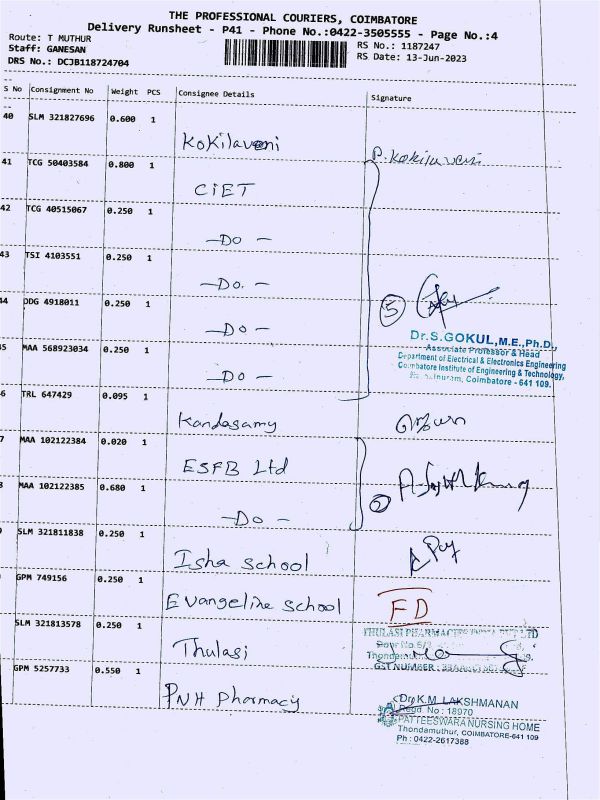 THE PROFESSIONAL COURIERS, COIMBATORE
Delivery Runsheet - P41 - Phone No.:0422-3505555 - Page No.:4
Route: T MUTHUR
RS No.: 1187247
Staff: GANESAN
RS Date: 13-Jun-2023
DRS No.: DCJB118724704
S No Consignment No Weight PCS Consignee Details Signature
40 SLM 321827696 0.600 1
Kokilaveni P. Kokilaveni
41 TCG 50403584 0.800 1
CIET
42 TCG 40515067 0.250 1
-Do-
43 TSI 4103551 0.250 1
-Do.-
5
44 DDG 4918011 0.250 1
-Do-
Dr.S.GOKUL,M.E.,Ph.D.,
Associate Professor & Head
5 MAA 568923034 0.250 1
Department of Electrical & Electronics Engineering
Coimbatore Institute of Engineering & Technology,
-Do-
Coimbatore - 641 109.
6 TRL 647429 0.095 1
Kandasamy
7 MAA 102122384 0.020 1
ESFB Ltd
8 MAA 102122385 0.680 1
2
-Do-
SLM 321811838 0.250 1
Isha School
GPM 749156 0.250 1
Evangeline School FD
SLM 321813578 0.250 1
THULASI PHARMACIES INDIA PVT LTD
Door No.
Thulasi
GST NUMBER :
GPM 5257733 0.550 1
PNH Pharmacy
Dr. K.M. LAKSHMANAN
Regd. No : 18970
PATTEESWARA NURSING HOME
Thondamuthur, COIMBATORE-641 109
Ph : 0422-2617388